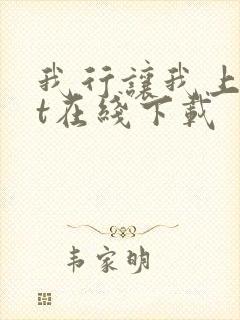 我行讓我上
t在綫下載
韦家明